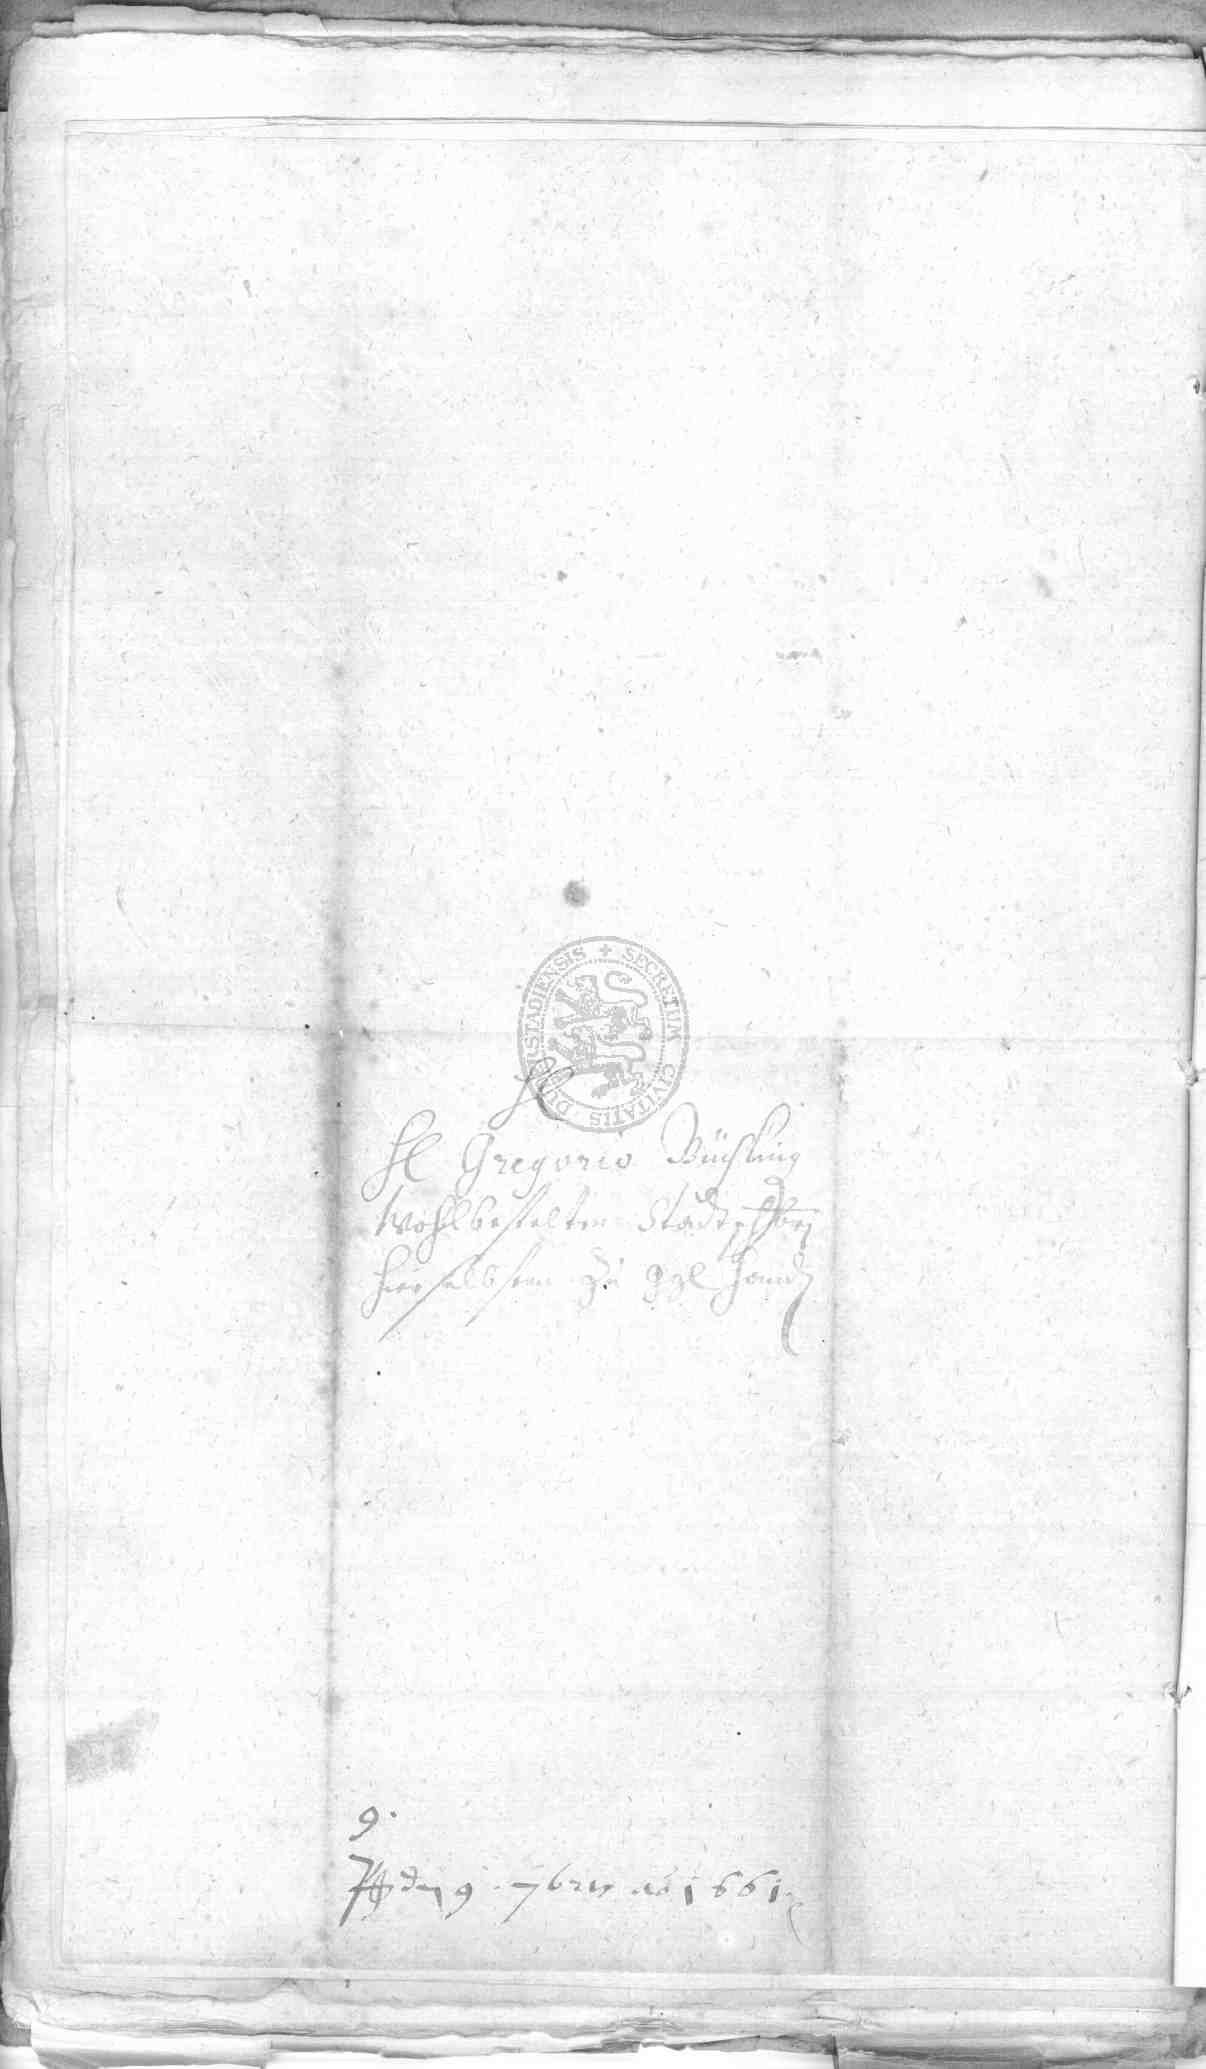 SECRETUM CIVITATIS DUDERSTADIENSIS
H
H Gregorio Büsking
Wohlbestelten Stadt
hierselbsten zu hand
9.
den 9. 7bris ao 1661.